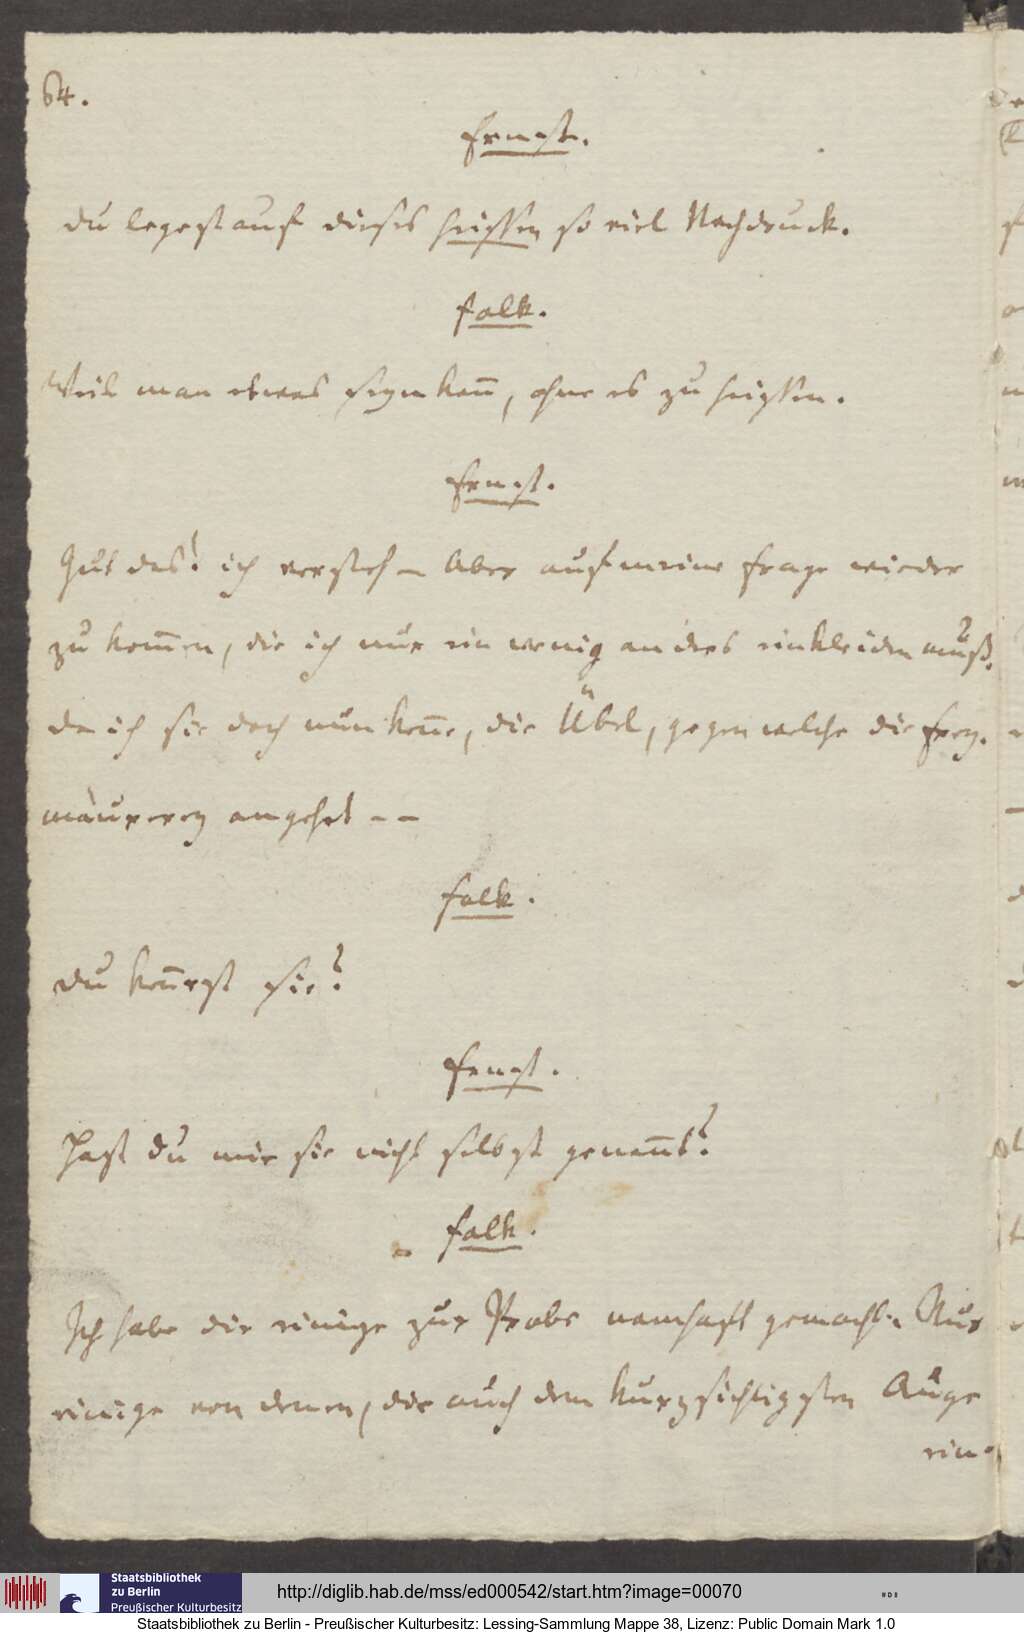 64.
Ernst.
du legest auf dieses heissen so viel Nachdruck.
Falk.
Weil man etwas seyn kan̄, ohne es zu heissen.
Ernst.
Gut das! ich versteh – Aber auf meine Frage wieder
zu kom̄en, die ich nur ein wenig anders einkleiden muß.
da ich sie doch nun ken̄e, die Übel, gegen welche die Frey-
mäurerey angehet – –
Falk.
du ken̄est sie?
Ernst.
Hast du mir sie nicht selbst genan̄t?
Falk.
Ich habe dir einige zur Probe namhaft gemacht. Nur
einige von denen, die auch dem kurzsichtigsten Auge
ein-
Staatsbibliothek
zu Berlin
Preußischer Kulturbesitz
http://diglib.hab.de/mss/ed000542/start.htm?image=00070
Staatsbibliothek zu Berlin - Preußischer Kulturbesitz: Lessing-Sammlung Mappe 38, Lizenz: Public Domain Mark 1.0